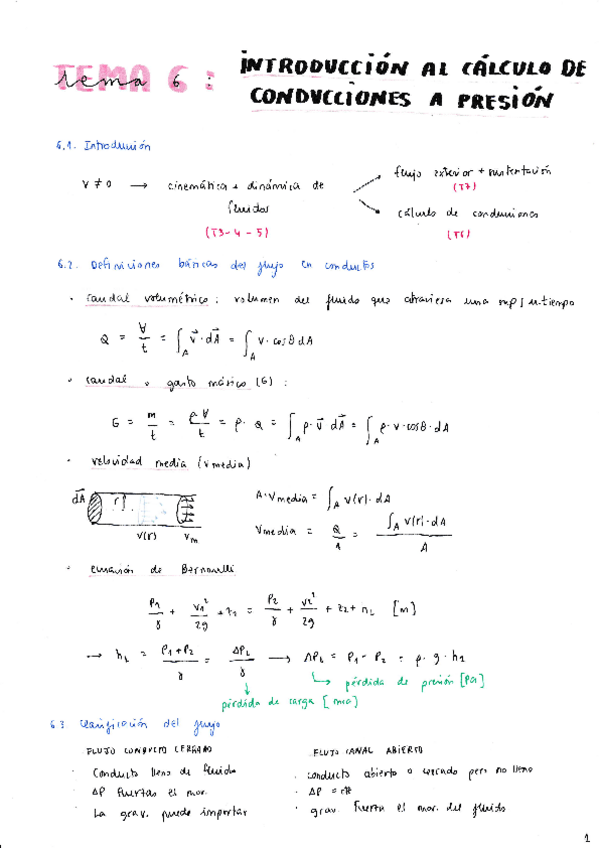 TEMA 6 : INTRODUCCIÓN AL CÁLCULO DE
CONDUCCIONES A PRESIÓN
6.1. Introducción
V ≠ 0 → cinemática + dinámica de fluidos (T3-4-5)
flujo exterior + sustentación
(T7)
cálculo de conducciones
(T6)
6.2. Definiciones básicas del flujo en conductos
· caudal volumétrico : volumen del fluido que atraviesa una sup/u.tiempo
Q = V/t = ∫A v⃗ · dA⃗ = ∫A v · cosθ dA
· caudal o gasto másico (G) :
G = m/t = ρV/t = ρ · Q = ∫A ρ · v⃗ dA⃗ = ∫A ρ · v · cosθ · dA
· velocidad media (vmedia)
dA⃗ r v(r) vm
A · Vmedia = ∫A v(r) · dA
Vmedia = Q/A = ∫A v(r) · dA / A
· ecuación de Bernoulli
P1/γ + V1²/2g + z1 = P2/γ + V2²/2g + z2 + hL [m]
→ hL = P1+P2/γ = ΔPL/γ → ΔPL = P1 - P2 = ρ · g · hL
pérdida de presión [Pa]
pérdida de carga [mca]
6.3 Clasificación del flujo
FLUJO CONDUCTO CERRADO
· Conducto lleno de fluido
· ΔP fuerzas es mov.
· La grav. puede importar
FLUJO CANAL ABIERTO
· conducto abierto o cerrado pero no lleno
· ΔP = cte
· grav. fuerza es mov. del fluido
1